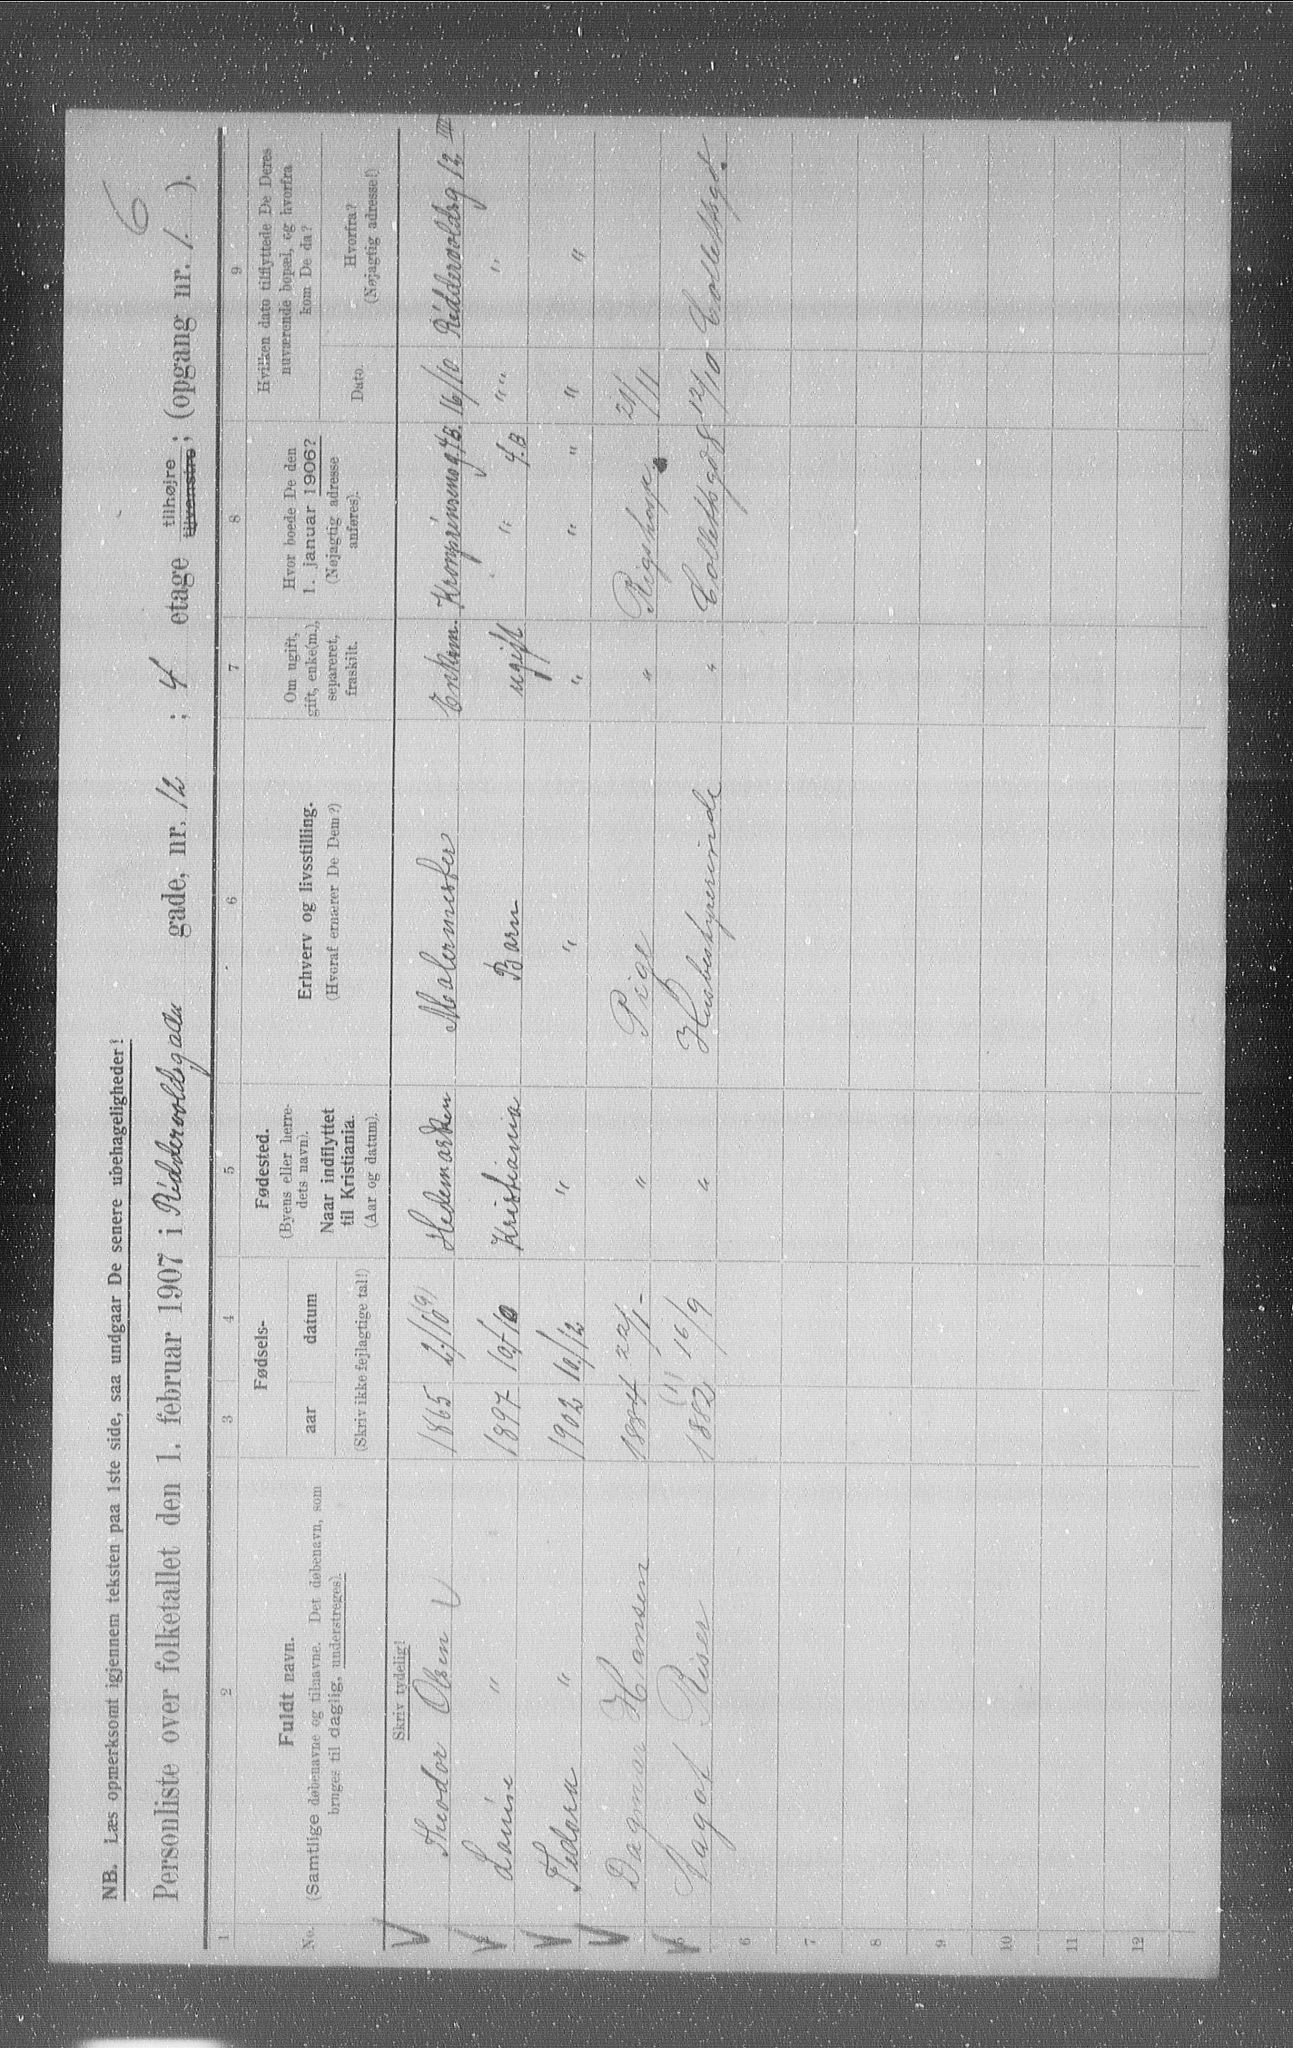 6
NB. Læs opmerksomt igjennem teksten paa 1ste side, saa undgaar De senere ubehageligheder!
Personliste over folketallet den 1. februar 1907 i Riddervoldsgaden gade, nr. 12 ; 4 etage tilhøjre tilvenstre; (opgang nr. 1. ).
1 2 3 4 5 6 7 8 9
No.
Fuldt navn.
(Samtlige døbenavne og tilnavne. Det døbenavn, som
bruges til daglig, understreges).
Fødsels-
aar datum
(Skriv ikke fejlagtige tal!)
Fødested.
(Byens eller herre-
dets navn).
Naar indflyttet
til Kristiania.
(Aar og datum).
Erhverv og livsstilling.
(Hvoraf ernærer De Dem?)
Om ugift,
gift, enke(m.),
separeret,
fraskilt.
Hvor boede De den
1. januar 1906?
(Nøjagtig adresse
anføres).
Hvilken dato tilflyttede De Deres
nuværende bopæl, og hvorfra
kom De da?
Dato.
Hvorfra?
(Nøjagtig adresse!)
Skriv tydelig!
Theodor Olsen 1865 Hedemarken Malermester Enkem. Kronprinsensg 4B. 16/10 Riddervoldsg 12 III
Louise " 1897 10/10 Kristiania Barn ugift " 4.B " " "
Fedora " 1902 10/12 " " " " " " "
Dagmar Hansen 1884 22/1- " Pige " Rigshosp. 21/11
Aagot Riser 1882 (1) 16/9 " Husbestyrerinde " Collettsgd 8 12/10 Collettsgt.
5
6
7
8
9
10
11
12